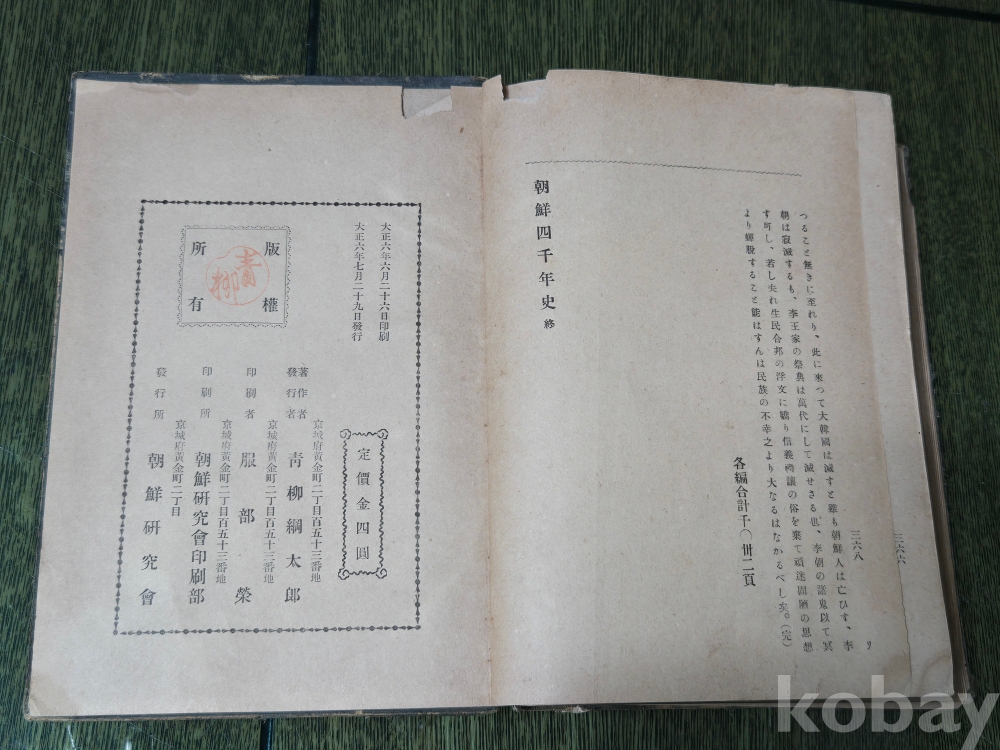 三六六
三六八
つること無きに至れり、此に來つて大韓國は滅すと雖も朝鮮人は亡ひす、李
朝は寂滅するも、李王家の祭典は萬代にして滅せさる也、李朝の諸鬼以て冥
す可し、若し夫れ生民合邦の浮文に驕り信義禮讓の俗を棄て頑迷固陋の思想
より蟬脫すること能はすんは民族の不幸之より大なるはなかるべし矣。(完)
各編合計千〇卌二頁
朝鮮四千年史 終
大正六年六月二十六日印刷
大正六年七月二十九日發行
版權
所有
靑柳
定價金四圓
京城府黃金町二丁目百五十三番地
著作者
發行者
靑柳綱太郎
京城府黃金町二丁目百五十三番地
印刷者 服部榮
京城府黃金町二丁目百五十三番地
印刷所 朝鮮硏究會印刷部
京城府黃金町二丁目
發行所 朝鮮硏究會
kobay